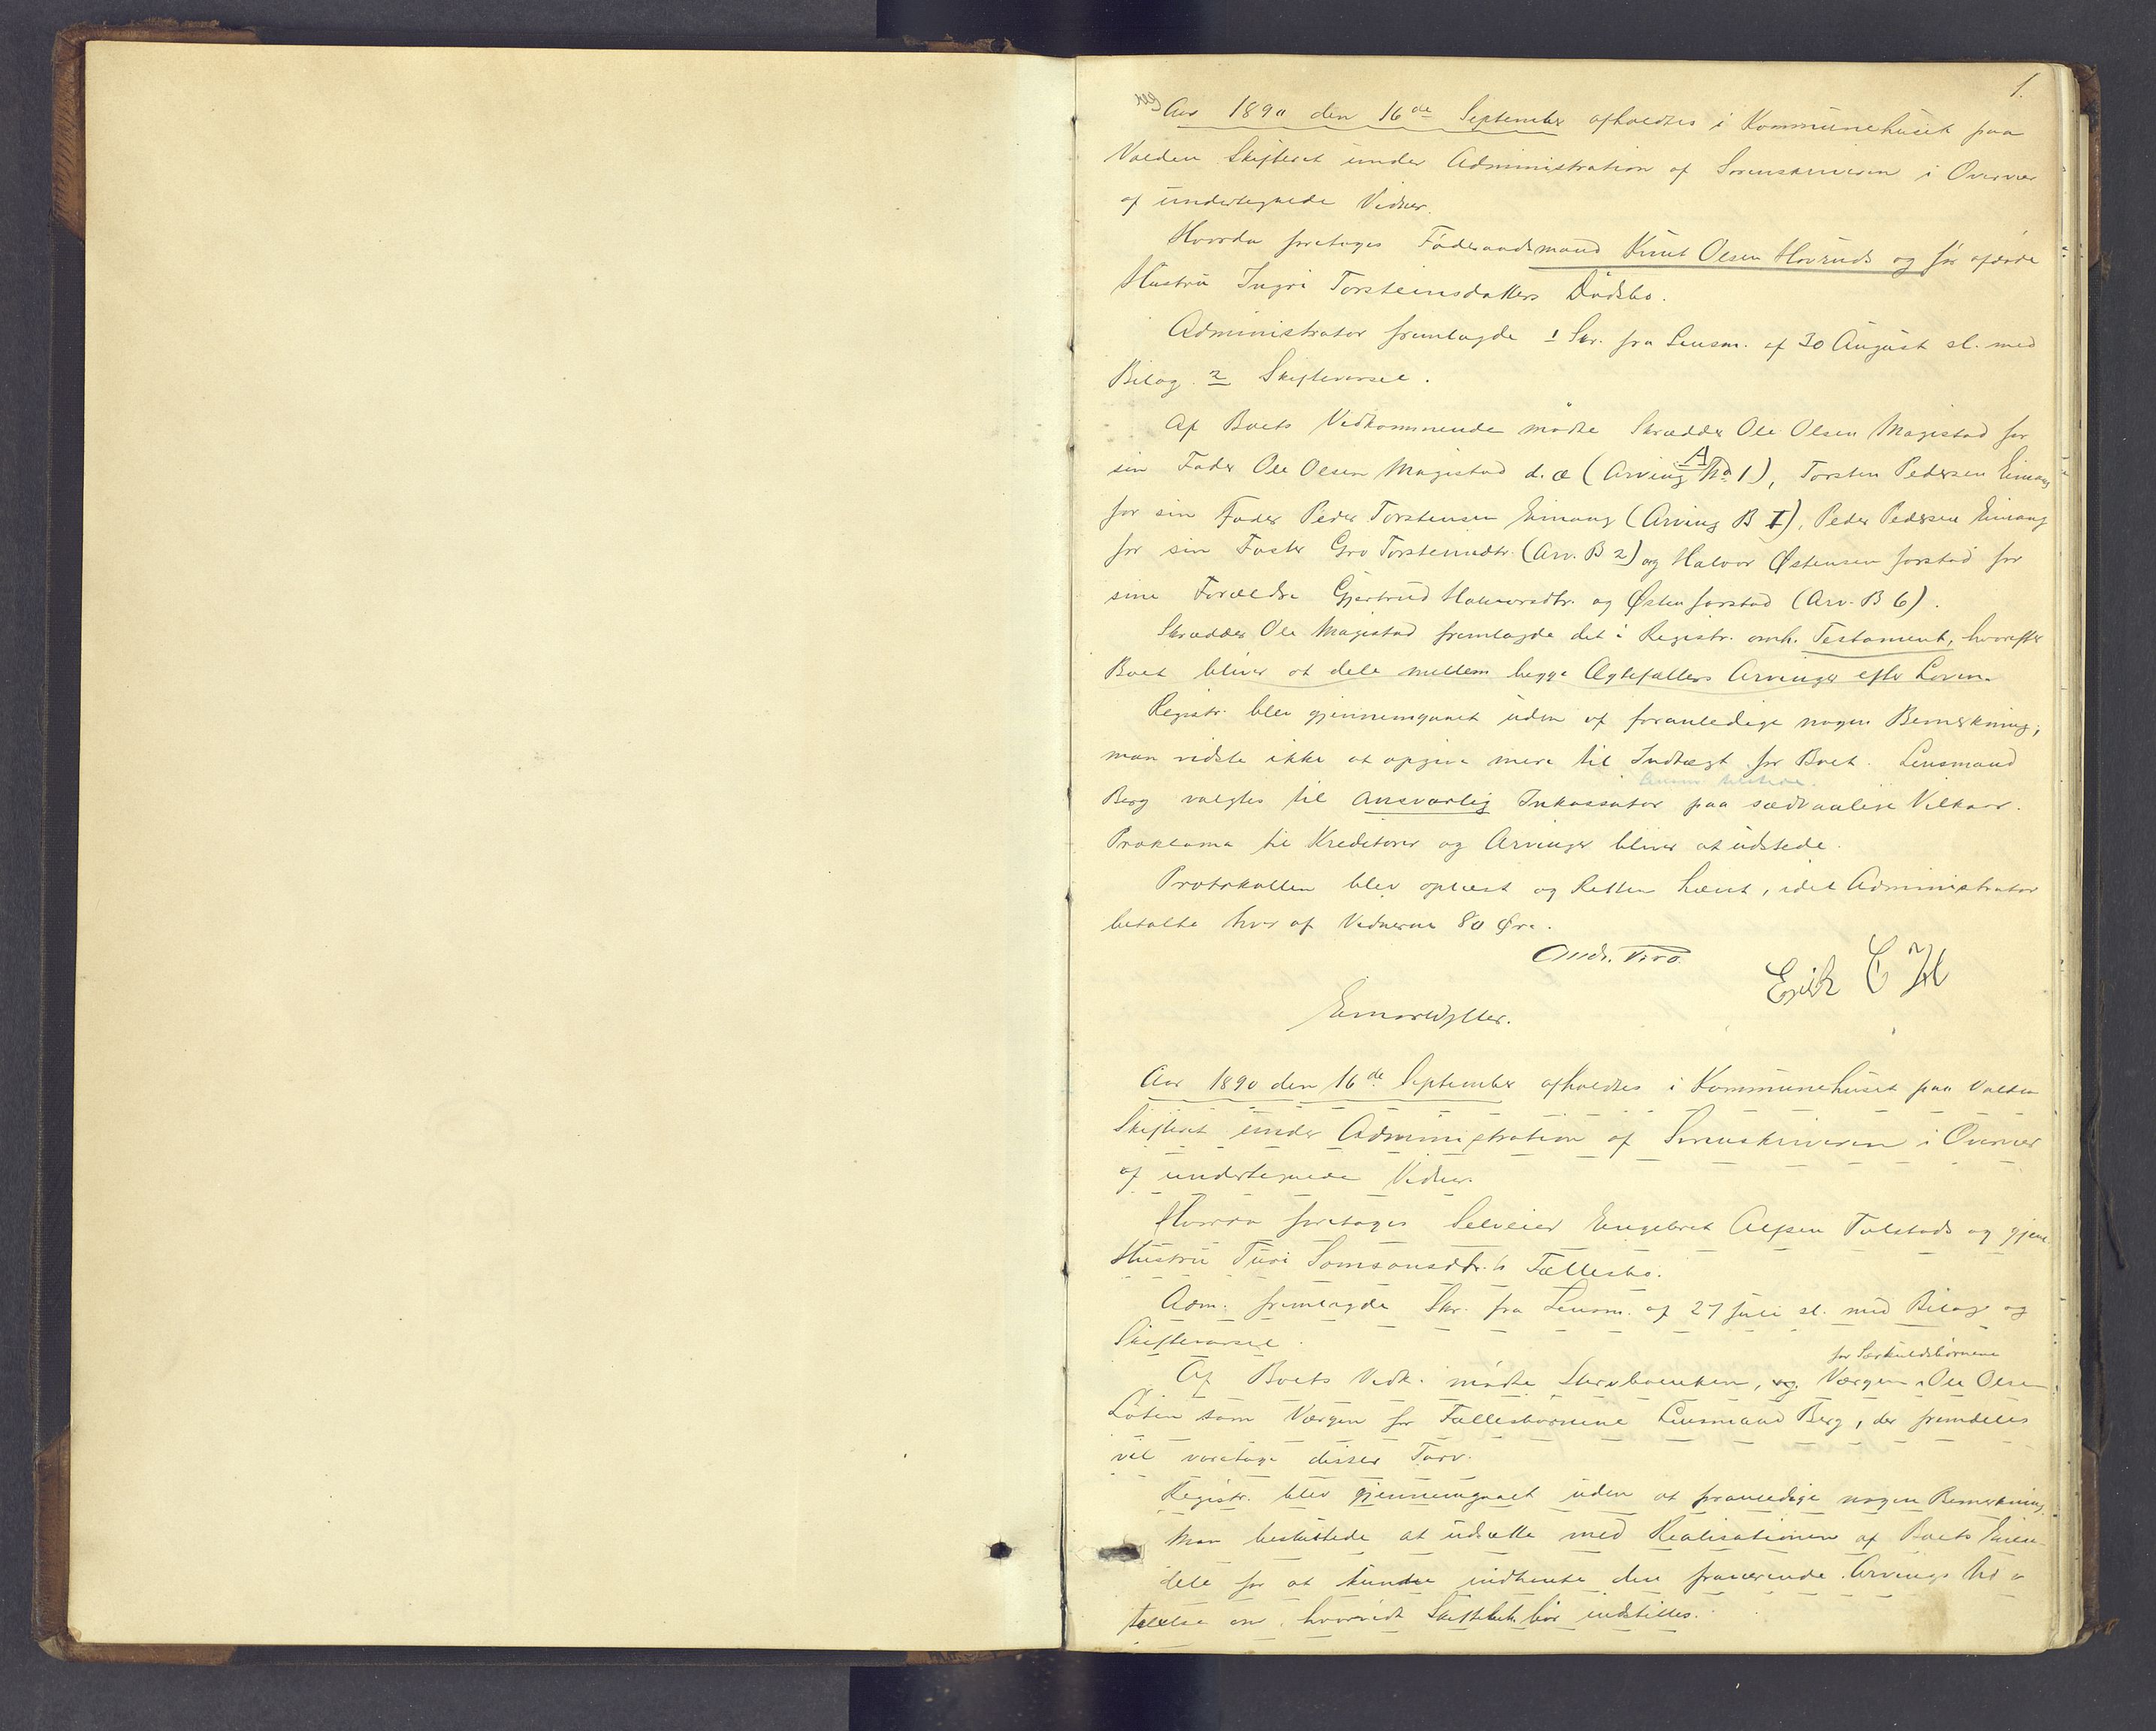 1.
Aar 1890 den 16de September afholdtes i Kommunehuset paa
Volden Skifteret under Administration af Sorenskriveren i Overvær
af undertegnede Vidner.
Hvorda foretoges Føderaadsmand Knut Olsen Hovruds og før afdøde
Hustru Ingri Torsteinsdatters Dødsbo.
Administrator fremlagde 1 Skr. fra Lensm. af 30 August sl. med
Bilag. 2 Skiftevarsel.
Af Boets Vedkommende mødte Skrædder Ole Olsen Magistad for
sin Fader Ole Olsen Magistad d. æ (Arving A No 1), Torsten Pedersen Einang
for sin Fader Peder Torstensen Einang (Arving B I), Peder Pedersen Einang
for sin Faster Gro Torsteinsdtr. (Arv. B 2) og Halvor Østensen Jorstad for
sine Forældre Gjertrud Halvorsdtr. og Østen Jorstad (Arv. B 6).
Skrædder Ole Magistad fremlagde det i Registr. omh. Testament, hvorefter
Boet bliver at dele mellem begge Ægtefællers Arvinger efter Loven.
Registr. blev gjennemgaaet uden at foranledige nogen Bemærkning;
man vidste ikke at opgive mere til Indtægt for Boet. Lensmand
Berg valgtes til ansvarlig Inkassator paa sædvanlige Vilkaar.
Proklama til Kreditorer og Arvinger bliver at udstede.
Protokollen blev oplæst og Retten hævet, idet Administrator
betalte hver af Vidnerne 80 Øre.
Erik E H
Aar 1890 den 16de September afholdtes i Kommunehuset paa Volden
Skifteret under Administration af Sorenskriveren i Overvær
af undertegnede Vidner.
Hvorda foretoges Selveier Engebret Alfsen Tolstads og gjenl.
Hustru Turi Samsonsdtr.s Fællesbo.
Adm. fremlagde Skr. fra Lensm. af 27 Juli sl. med Bilag og
Skiftevarsel.
for Særkuldsbørnene
Af Boets Vedk. mødte Stervboenken, Værgen Ole Olsen
som Værgen for Fællesbørnene Lensmand Berg, der fremdeles
vil varetage disses Tarv.
Registr. blev gjennemgaaet uden at foranledige nogen Bemærkning.
Man besluttede at udsætte med Realisationen af Boets Eien-
dele for at kunde indhente den fraværende Arvings Ud-
talelse om, hvorvidt bør indstilles.